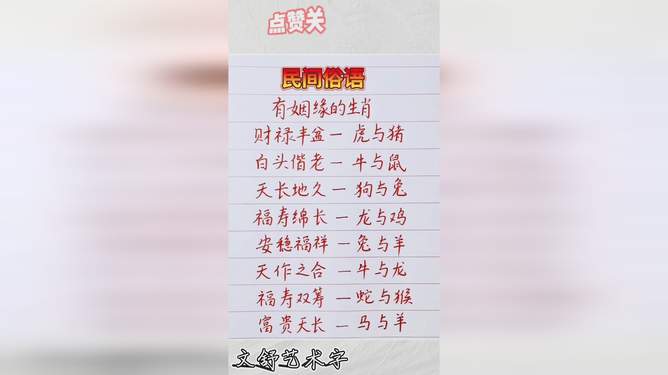 点赞关
民间俗语
有姻缘的生肖
财禄丰盆一 虎与猪
白头偕老一 牛与鼠
天长地久一 狗与兔
福寿绵长一 龙与鸡
安稳福祥一 兔与羊
天作之合一 牛与龙
福寿双筹一 蛇与猴
富贵天长一 马与羊
文舒艺术字